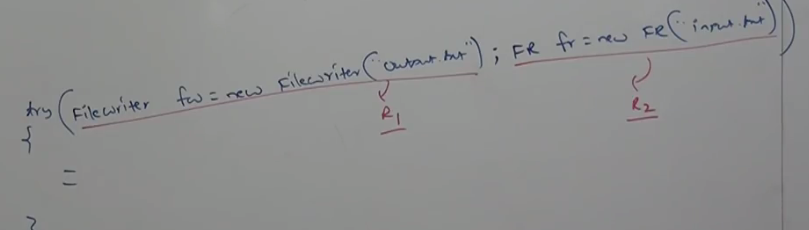 try (FileWriter fw = new FileWriter("output.txt"); FR fr = new FR("input.txt"))
R1
R2
{
=
}